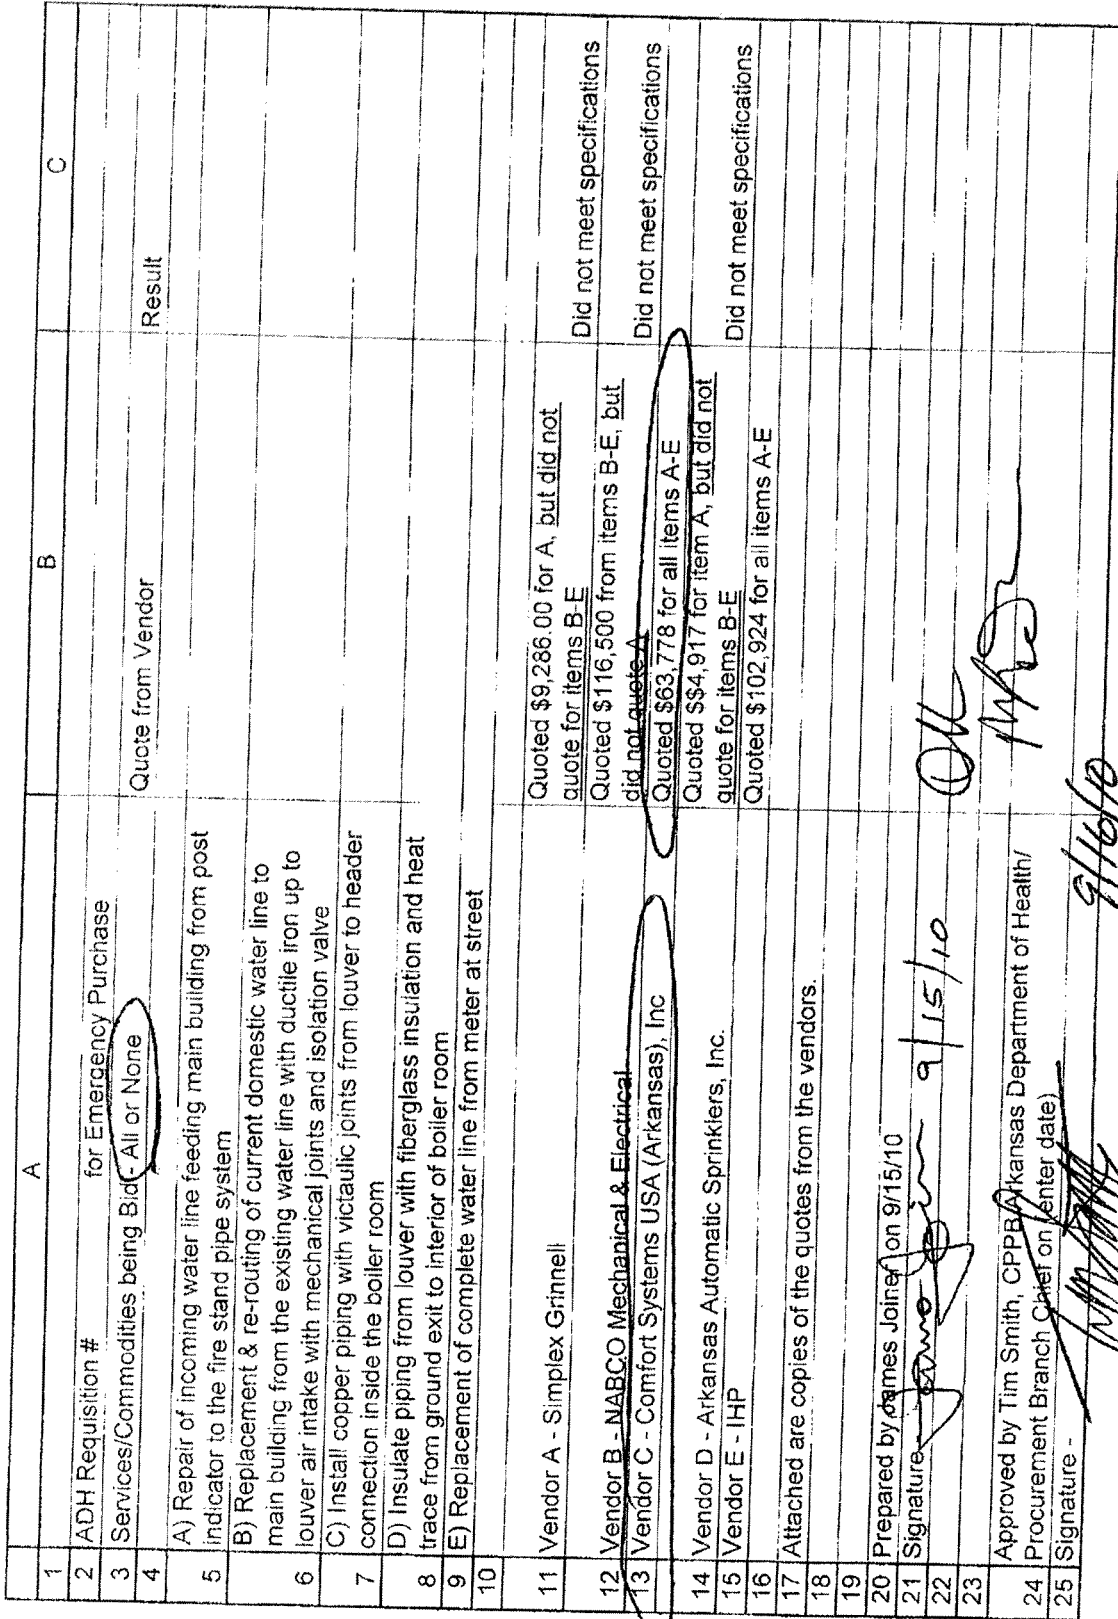 A B C
1
2 ADH Requisition # for Emergency Purchase
3 Services/Commodities being Bid - All or None
4 Quote from Vendor Result
A) Repair of incoming water line feeding main building from post
5 indicator to the fire stand pipe system
B) Replacement & re-routing of current domestic water line to
main building from the existing water line with ductile iron up to
6 louver air intake with mechanical joints and isolation valve
C) Install copper piping with victaulic joints from louver to header
7 connection inside the boiler room
D) Insulate piping from louver with fiberglass insulation and heat
8 trace from ground exit to interior of boiler room
9 E) Replacement of complete water line from meter at street
10
Quoted $9,286.00 for A, but did not
11 Vendor A - Simplex Grinnell quote for items B-E Did not meet specifications
Quoted $116,500 from items B-E, but
12 Vendor B - NABCO Mechanical & Electrical did not quote A Did not meet specifications
13 Vendor C - Comfort Systems USA (Arkansas), Inc Quoted $63,778 for all items A-E
Quoted $$4,917 for item A, but did not
14 Vendor D - Arkansas Automatic Sprinklers, Inc. quote for items B-E Did not meet specifications
15 Vendor E - IHP Quoted $102,924 for all items A-E
16
17 Attached are copies of the quotes from the vendors.
18
19
20 Prepared by James Joiner on 9/15/10
21 Signature - 9/15/10
22
23
Approved by Tim Smith, CPPB Arkansas Department of Health/
24 Procurement Branch Chief on (enter date)
25 Signature - 9/16/10